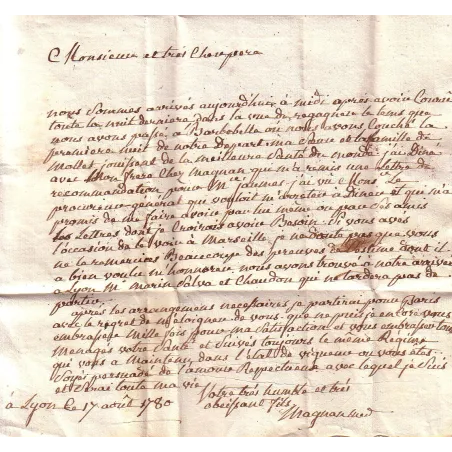 Monsieur et très Cher pere
nous Sommes arrivés aujourd'huir à midi après avoir Couru
toute la nuit derniere dans la vue de regagner le tems que
nous avons passé a Barbebelle ou nous avons Couché la
premiere nuit de notre Depart. ma Sœur et la famille de
Mallet jouissent de la meilleure Santé du monde j'ai Diné
avec Mon frere Cher Magnan qui m'a remis une Lettre de
recommandation pour M Jaumes j'ai vu Mons. Le
procureur general qui vouloit m'arreter a Diner et qui m'a
promis de me faire avoir par lui meme ou par Ses amis
les Lettres dont je Croirais avoir Besoin. Si vous avés
l'occasion de le voir à Marseille je ne doute pas que vous
ne le remerciés Beaucoup des preuves d'estime dont il
a bien voulu m'honorer. nous avons trouvé à notre arrivée
a Lyon Mr Marin Salva et Chaudon qui ne tardera pas de
partir.
après les arrangemens necessaires je partirai pour Paris
avec le regret de m'eloigner de vous que ne puis-je encore vous
embrasser Mille fois pour ma Satisfaction et vous embrasser tous
Menagés votre Santé et Suivés toujours le meme Regime
qui vous a Maintenu dans l'etat de vigueur ou vous etes.
Soyés persuadé de l'amour Respectueux avec lequel je Suis
et Serai toute ma vie
Votre très humble et très
à Lyon ce 17 août 1780
obeissant fils
Magnan